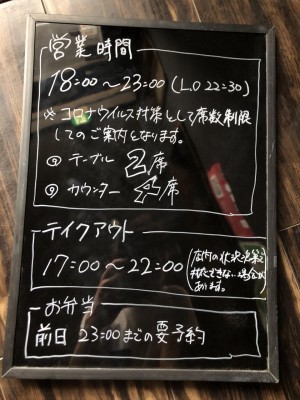 営業時間
18:00〜23:00(L.O 22:30)
※コロナウイルス対策として席数制限
してのご案内となります。
◎テーブル 2席
◎カウンター 4席
テイクアウト
17:00〜22:00
(店内の状況次第で
お受けできない場合が
あります。)
お弁当
前日 23:00までの要予約